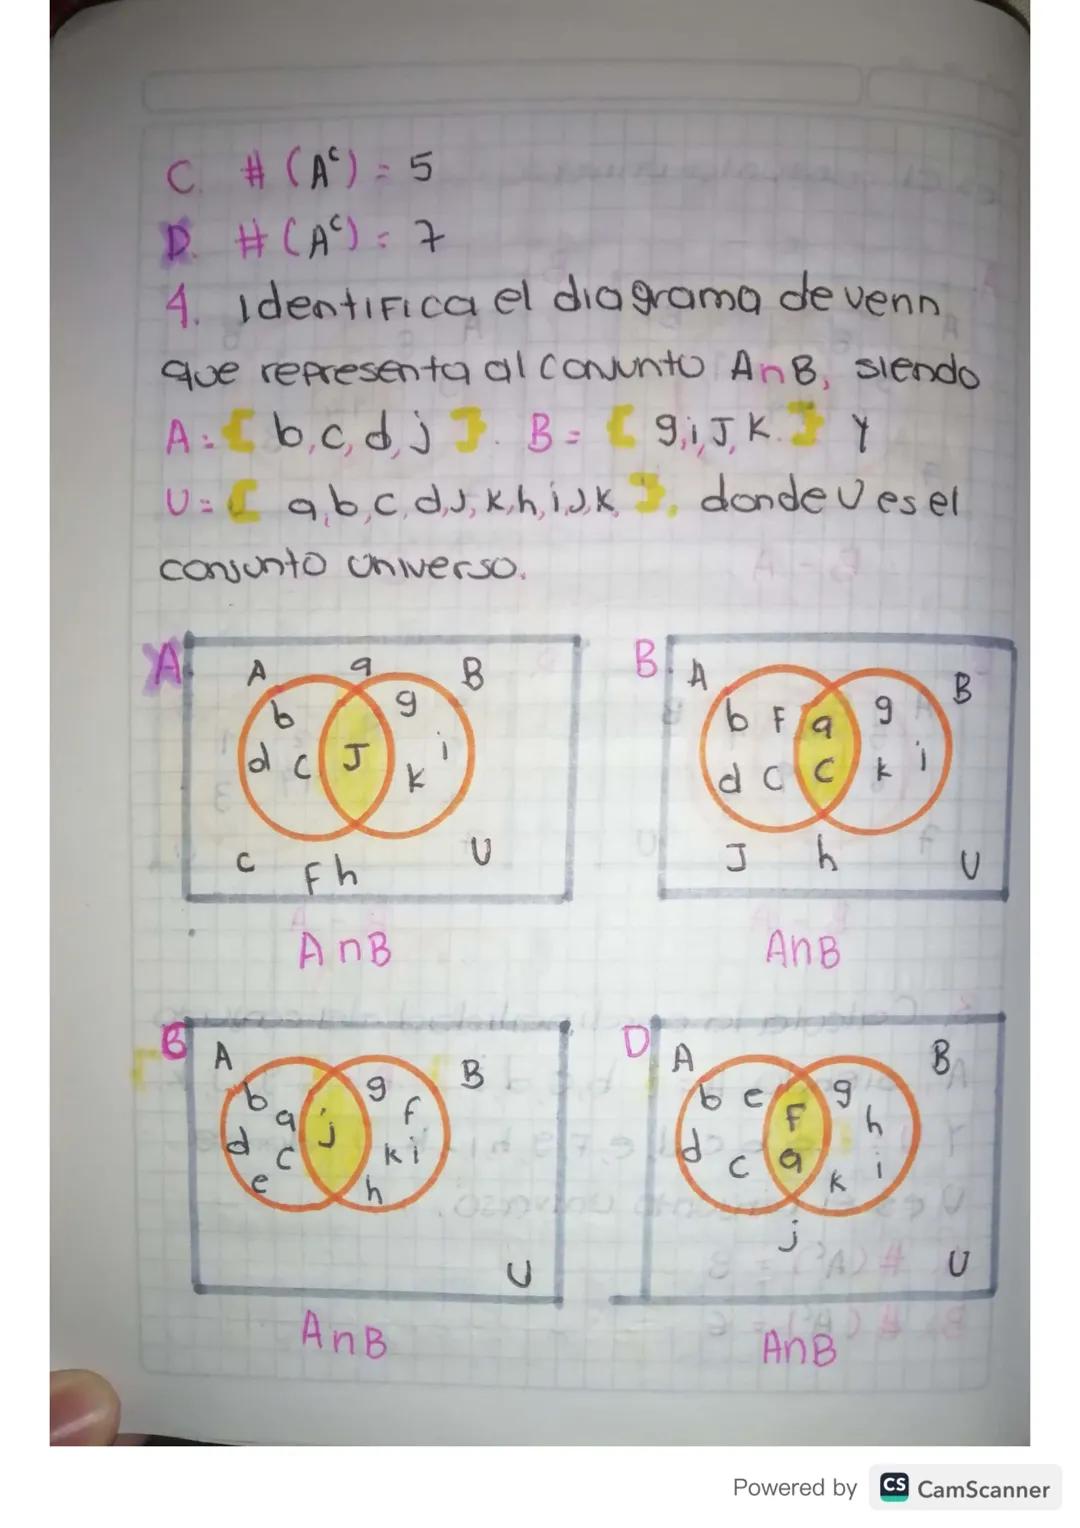 C. # (Aᶜ) = 5
D. # (Aᶜ) = 7
4. Identifica el diagrama de venn
que representa al conjunto A∩B, siendo
A = { b, c, d, j }. B = { g, i, J, K. } Y
U = { a, b, c, d, J, K, h, i, J, K, }, donde U es el
conjunto universo.
A.
A a B
b g
d c J k i
c F h U
A∩B
B.
A B
b F a g
d c c k i
J h U
A∩B
B
A B
b a j g f
d c k i
e h
U
A∩B
D
A B
b e F g h
d c a k i
j U
A∩B
Powered by CS CamScanner